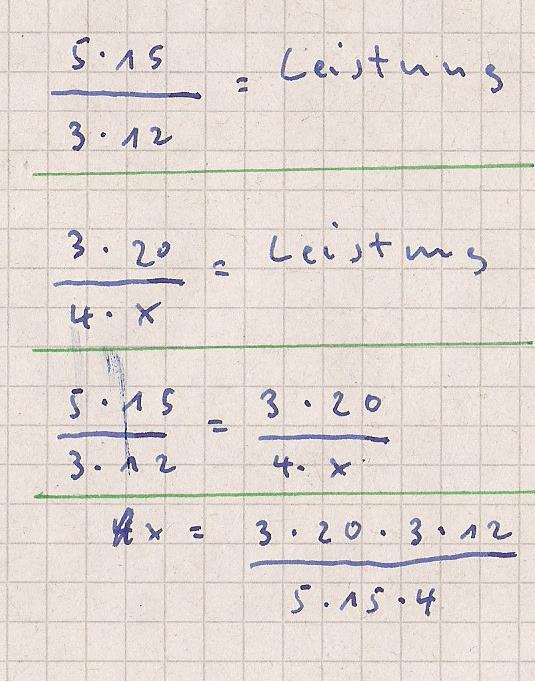 5 · 15
3 · 12
= Leistung
3 · 20
4 · x
= Leistung
5 · 15
3 · 12
=
3 · 20
4 · x
x =
3 · 20 · 3 · 12
5 · 15 · 4